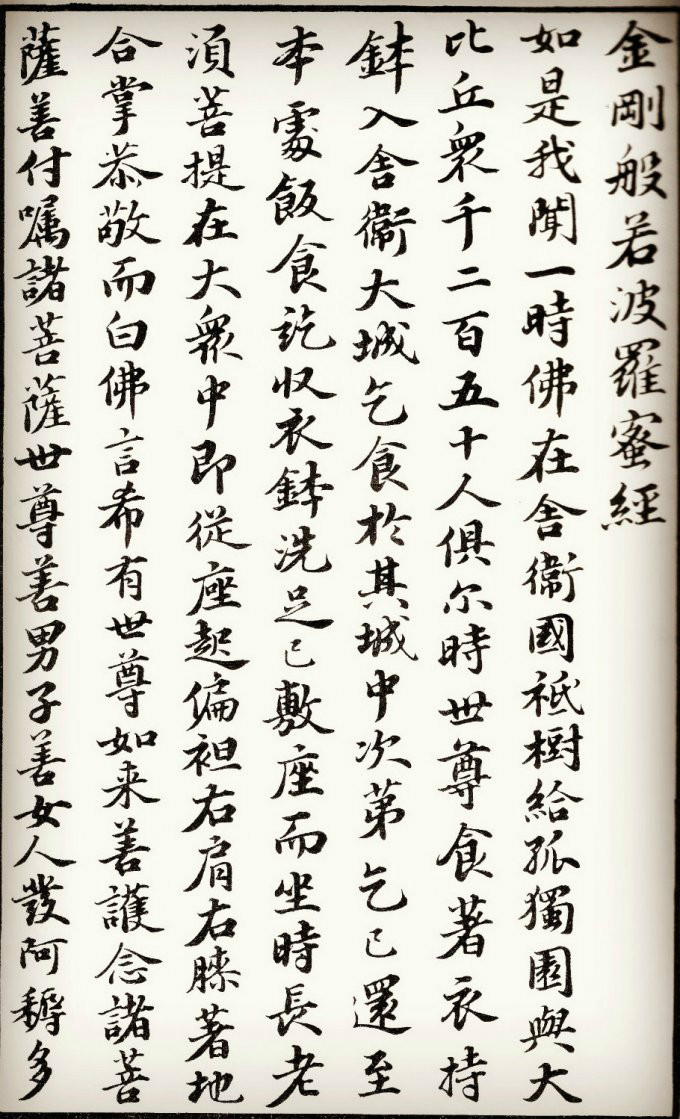 金剛般若波羅蜜經
如是我聞一時佛在舍衞國祇樹給孤獨園與大
比丘衆千二百五十人俱尓時世尊食著衣持
鉢入舍衞大城乞食於其城中次第乞已還至
本處飯食訖収衣鉢洗足已敷座而坐時長老
湏菩提在大衆中即從座起偏袒右肩右膝著地
合掌恭敬而白佛言希有世尊如来善護念諸菩
薩善付嘱諸菩薩世尊善男子善女人發阿耨多